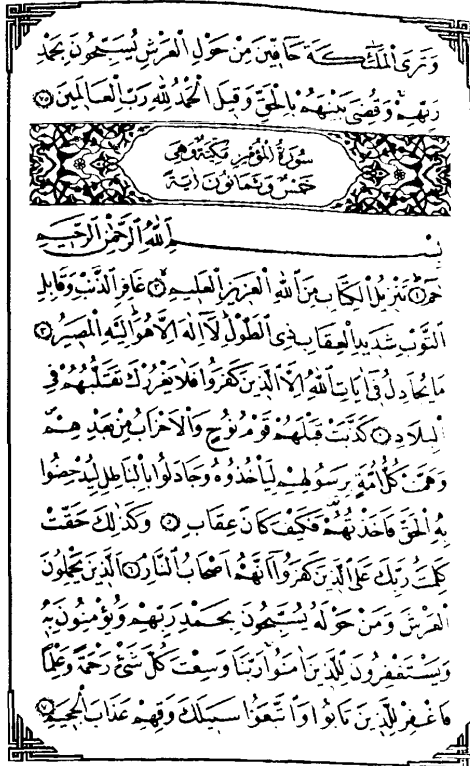 وَتَرَى الْمَلٰٓئِكَةَ حَٓافّ۪ينَ مِنْ حَوْلِ الْعَرْشِ يُسَبِّحُونَ بِحَمْدِ
رَبِّهِمْۚ وَقُضِيَ بَيْنَهُمْ بِالْحَقِّ وَق۪يلَ الْحَمْدُ لِلّٰهِ رَبِّ الْعَالَم۪ينَ ﴿٧٥﴾
سُورَةُ الْمُؤْمِنِ مَكِّيَّةٌ وَهِيَ
خَمْسٌ وَثَمَانُونَ اٰيَةً
بِسْمِ اللّٰهِ الرَّحْمٰنِ الرَّح۪يمِ
حٰمٓۜ ﴿١﴾ تَنْز۪يلُ الْكِتَابِ مِنَ اللّٰهِ الْعَز۪يزِ الْعَل۪يمِۙ ﴿٢﴾ غَافِرِ الذَّنْبِ وَقَابِلِ
التَّوْبِ شَد۪يدِ الْعِقَابِ ذِي الطَّوْلِۜ لَٓا اِلٰهَ اِلَّا هُوَۜ اِلَيْهِ الْمَص۪يرُ ﴿٣﴾
مَا يُجَادِلُ ف۪ٓي اٰيَاتِ اللّٰهِ اِلَّا الَّذ۪ينَ كَفَرُوا فَلَا يَغْرُرْكَ تَقَلُّبُهُمْ فِي
الْبِلَادِ ﴿٤﴾ كَذَّبَتْ قَبْلَهُمْ قَوْمُ نُوحٍ وَالْاَحْزَابُ مِنْ بَعْدِهِمْۖ
وَهَمَّتْ كُلُّ اُمَّةٍ بِرَسُولِهِمْ لِيَأْخُذُوهُ وَجَادَلُوا بِالْبَاطِلِ لِيُدْحِضُوا
بِهِ الْحَقَّ فَاَخَذْتُهُمْ فَكَيْفَ كَانَ عِقَابِ ﴿٥﴾ وَكَذٰلِكَ حَقَّتْ
كَلِمَتُ رَبِّكَ عَلَى الَّذ۪ينَ كَفَرُٓوا اَنَّهُمْ اَصْحَابُ النَّارِۢ ﴿٦﴾ اَلَّذ۪ينَ يَحْمِلُونَ
الْعَرْشَ وَمَنْ حَوْلَهُ يُسَبِّحُونَ بِحَمْدِ رَبِّهِمْ وَيُؤْمِنُونَ بِه۪
وَيَسْتَغْفِرُونَ لِلَّذ۪ينَ اٰمَنُواۚ رَبَّنَا وَسِعْتَ كُلَّ شَيْءٍ رَحْمَةً وَعِلْمًا
فَاغْفِرْ لِلَّذ۪ينَ تَابُوا وَاتَّبَعُوا سَب۪يلَكَ وَقِهِمْ عَذَابَ الْجَح۪يمِ ﴿٧﴾